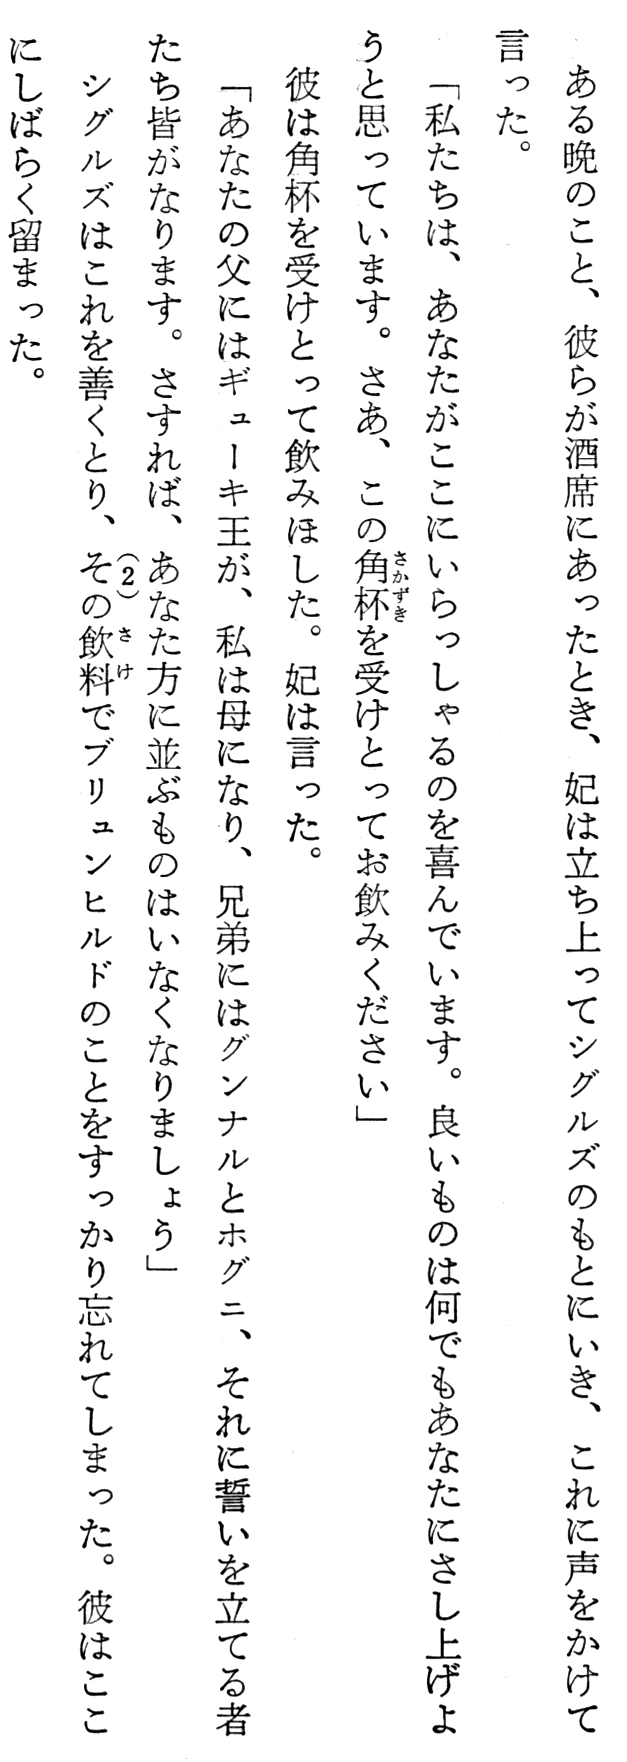 ある晩のこと、彼らが酒席にあったとき、妃は立ち上ってシグルズのもとにいき、これに声をかけて
言った。
「私たちは、あなたがここにいらっしゃるのを喜んでいます。良いものは何でもあなたにさし上げよ
うと思っています。さあ、この角杯さかずきを受けとってお飲みください」
彼は角杯を受けとって飲みほした。妃は言った。
「あなたの父にはギューキ王が、私は母になり、兄弟にはグンナルとホグニ、それに誓いを立てる者
たち皆がなります。さすれば、あなた方に並ぶものはいなくなりましょう」
シグルズはこれを善くとり、(2)その飲料さけでブリュンヒルドのことをすっかり忘れてしまった。彼はここ
にしばらく留まった。